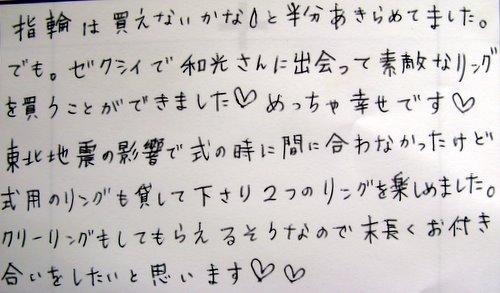 指輪は買えないかな💧と半分あきらめてました。
でも。ゼクシィで和光さんに出会って素敵なリング
を買うことができました♡めっちゃ幸せです♡
東北地震の影響で式の時に間に合わなかったけど
式用のリングも貸して下さり2つのリングを楽しめました。
クリーリングもしてもらえるそうなので末長くお付き
合いをしたいと思います♡♡